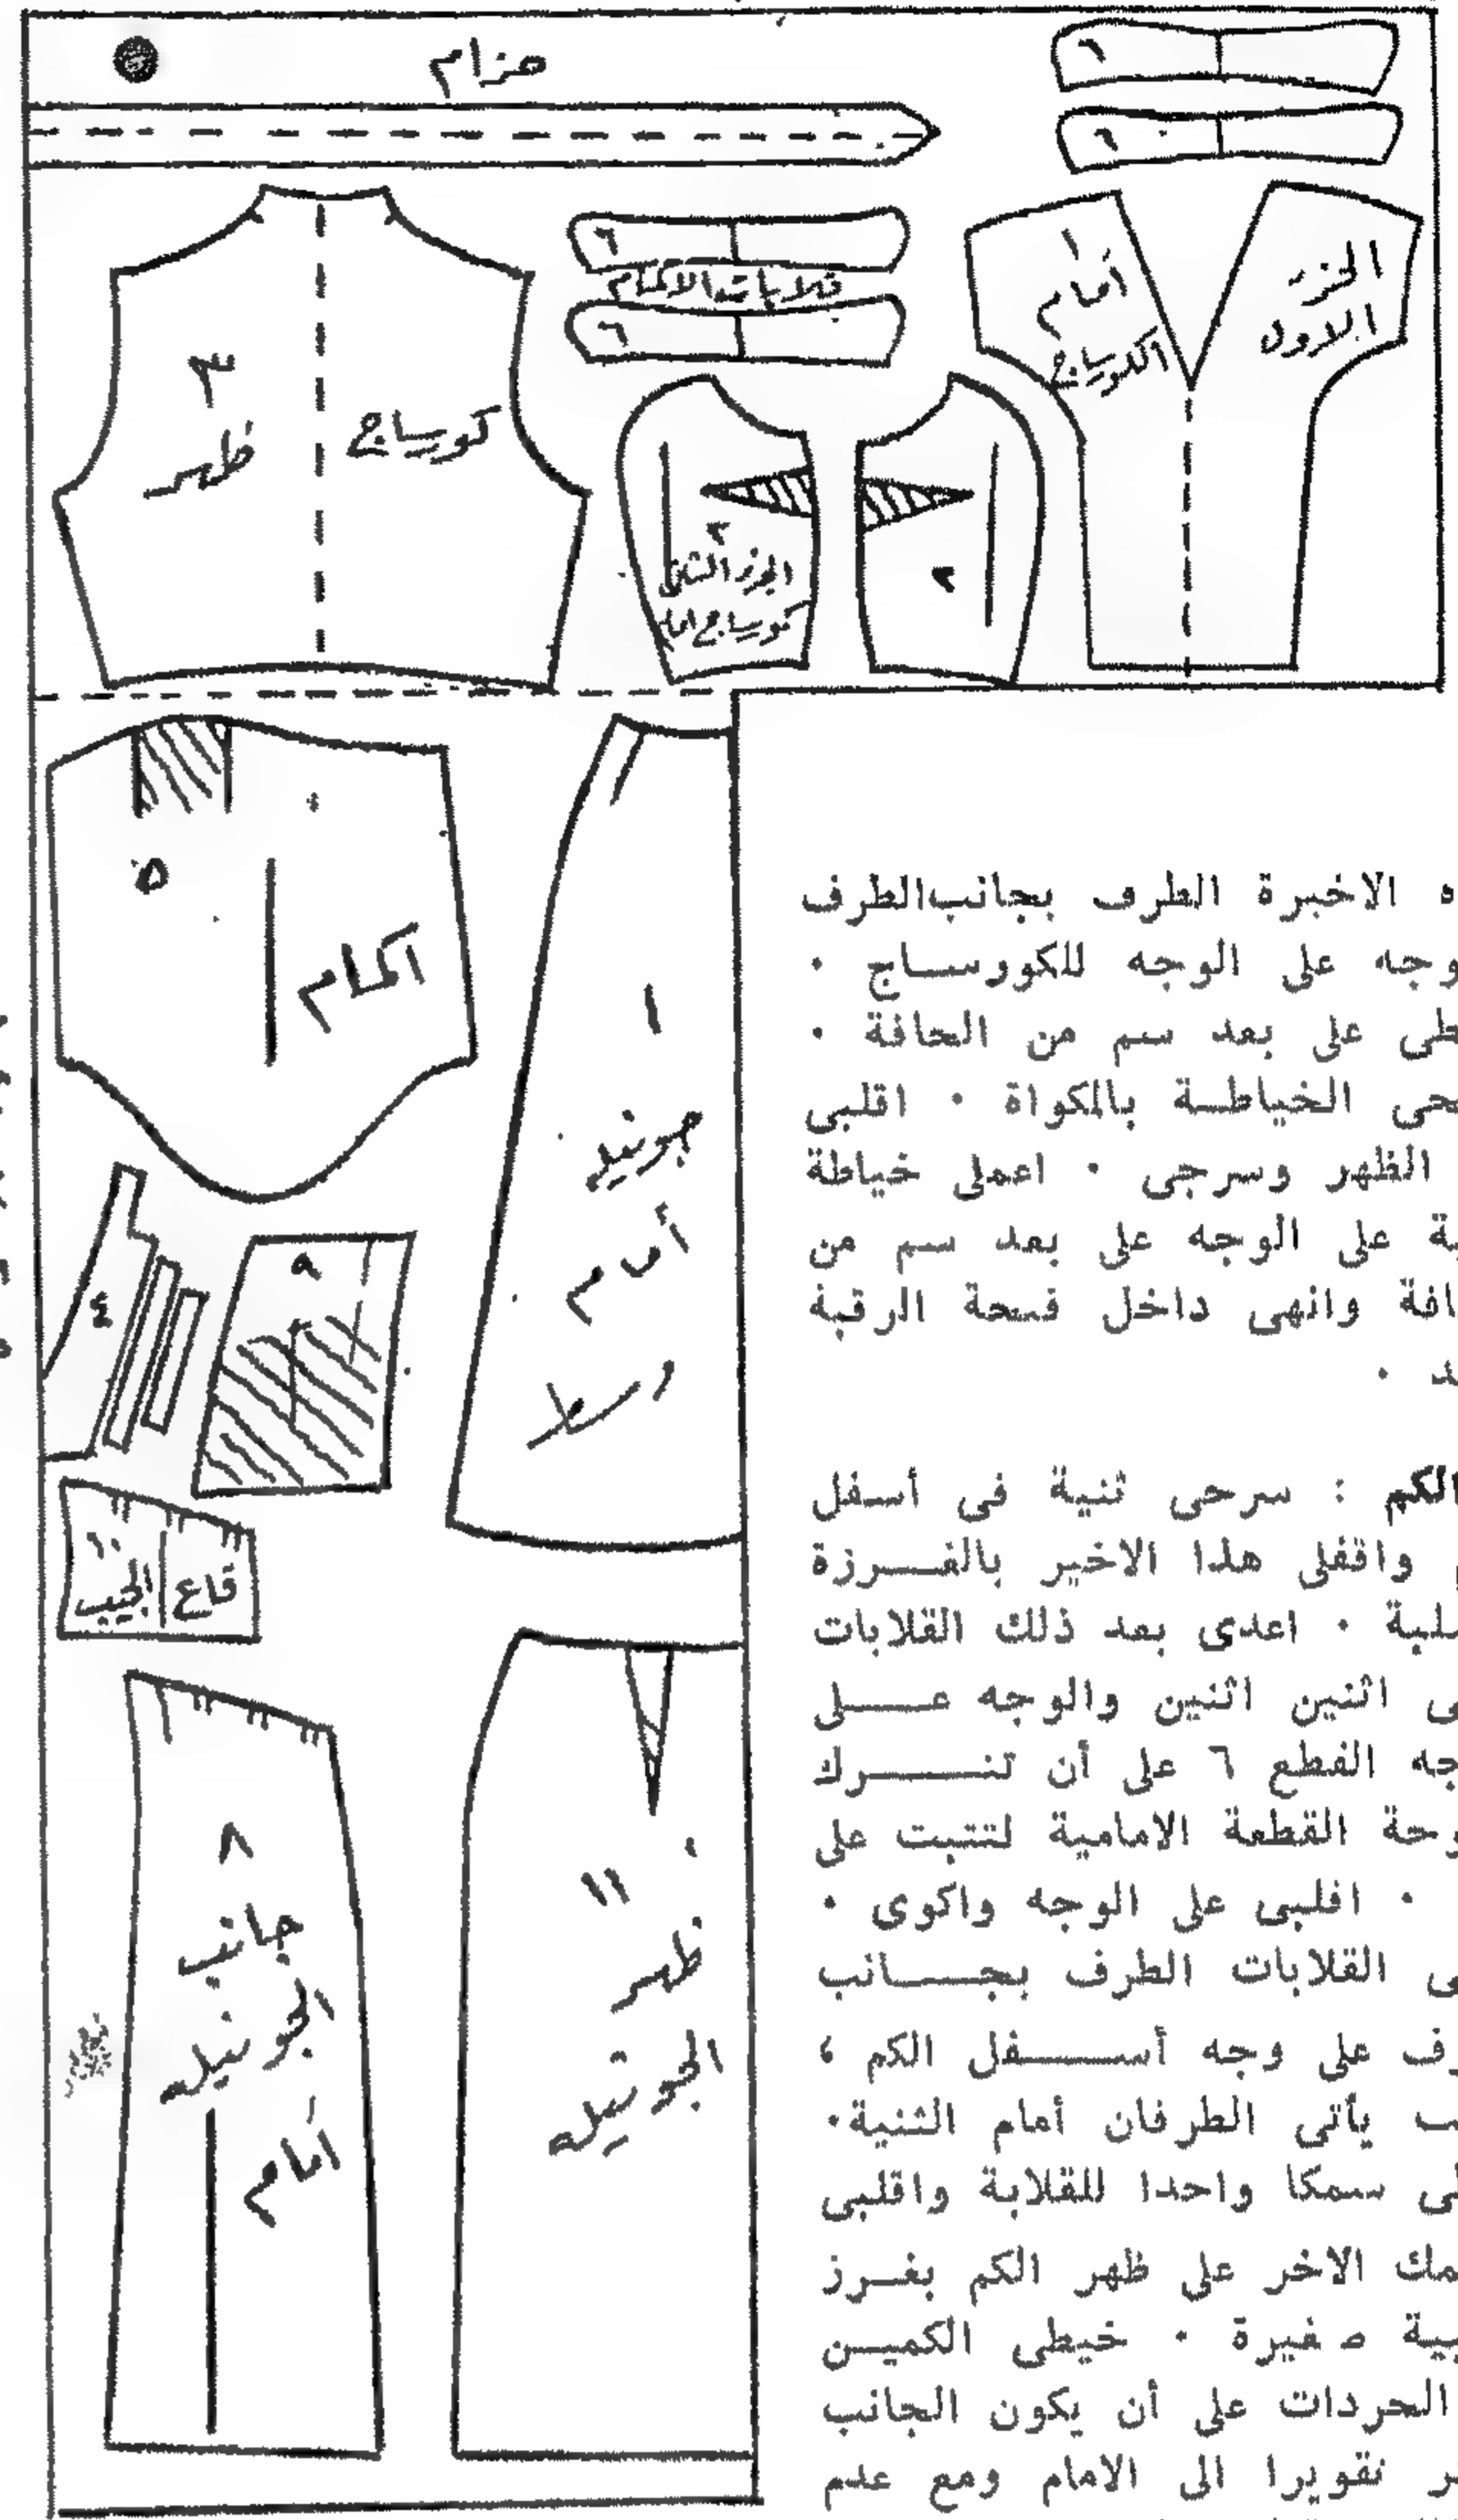 حزام
٦
٦
٦
قلابات الاكمام
٦
١
امام
الكورساج
الجزء
الاول
٣
ظهر
كورساج
٢
الجزء الثانى
كورساج امام
٢
٥
اكمام
١
جونيله
أمام
وسط
٤
٩
١٠
قاع الجيب
٨
جانب
الجونيله
امام
١١
ظهر
الجونيله
ه الاخيرة الطرف بجانب الطرف
وجه على الوجه للكورساج ·
طى على بعد سم من الحافة ·
حى الخياطة بالمكواة · اقلبى
الظهر وسرجى · اعملى خياطة
ية على الوجه على بعد سم من
افة وانهى داخل فتحة الرقبة
ـد ·
الكم : سرحى ثنية فى أسفل
واقفلى هذا الاخير بالغـــرزة
ـلية · اعدى بعد ذلك القلابات
ى اثنين اثنين والوجه عـــلى
جه القطع ٦ على أن تتـــرك
وحة القطعة الامامية لتتبت على
· اقلبى على الوجه واكوى ·
ى القلابات الطرف بجـــانب
رف على وجه أســـفل الكم ،
ـب يأتى الطرفان أمام الثنية·
ى سمكا واحدا للقلابة واقلبى
مك الاخر على ظهر الكم بغـرز
ـبية صغيرة · خيطى الكميـن
الحردات على أن يكون الجانب
ـر تقويرا الى الامام ومع عدم